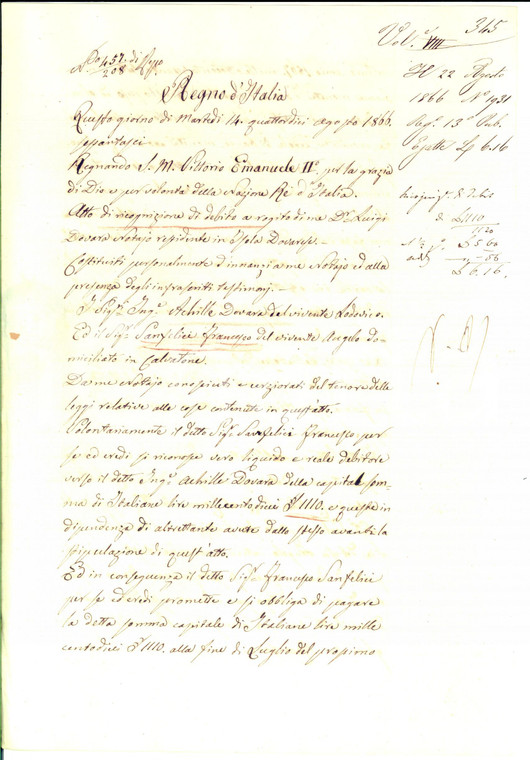 Vol.e VIII 345
N.o 457. di Rep.o
208
Regno d'Italia
Questo giorno di Martedì 14. quattordici agosto 1866
sessantasei
Regnando S. M. Vittorio Emanuele II.o per la grazia
di Dio e per volontà della Nazione Re d'Italia.
Atto di ricognizione di debito a rogito di me Dr. Luigi
Dovara Notajo residente in Isola Dovarese.
Costituiti personalmente d'innanzi a me Notajo ed alla
presenza degli infrascritti testimonj.
Il Sig.r Ing.e Achille Dovara del vivente Lodovico.
Ed il Sig.r Sanfelici Francesco del vivente Angelo do-
miciliato in Calvatone.
Da me Notajo conosciuti e cerziorati del tenore delle
leggi relative alle cose contenute in quest'atto.
Volontariamente il detto Sig.r Sanfelici Francesco per
se ed eredi si riconosce vero liquido e reale debitore
verso il detto Ing.e Achille Dovara della capitale som-
ma di Italiane lire millecentodieci £ 1110. e queste in
dipendenza di altrettante avute dallo stesso avanti la
stipulazione di quest'atto.
Ed in conseguenza il detto Sig.r Francesco Sanfelici
per se ed eredi promette e si obbliga di pagare
la detta somma capitale di Italiane lire mille
centodieci £ 1110. alla fine di Luglio del prossimo
Il 22 Agosto
1866 N.o 1931
Reg. 13
Esatte L 6.16
1110
11 20
£ 5 60
- 56
£ 6.16